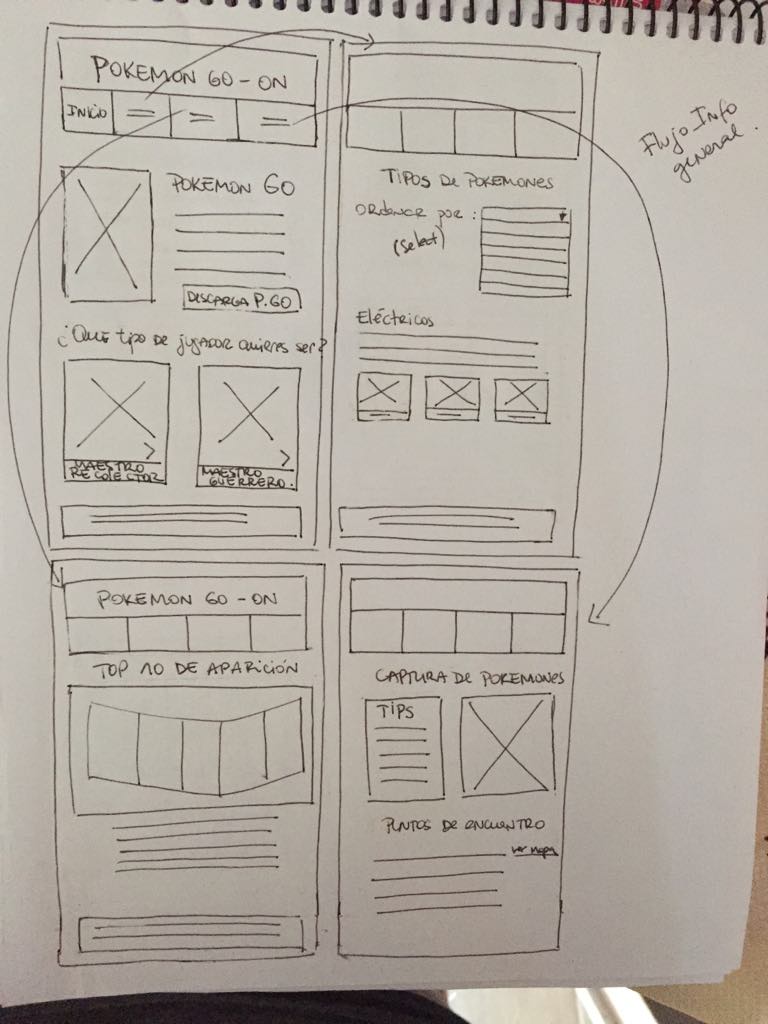 POKEMON GO - ON
INICIO
POKEMON GO
DESCARGA P.GO
¿Que tipo de jugador quieres ser?
MAESTRO
RECOLECTOR
MAESTRO
GUERRERO.
TIPOS DE POKEMONES
ORDENAR por :
(select)
Eléctricos
Flujo_Info
general.
POKEMON GO - ON
TOP 10 DE APARICIÓN
CAPTURA DE POKEMONES
TIPS
PUNTOS DE ENCUENTRO
ver mapa